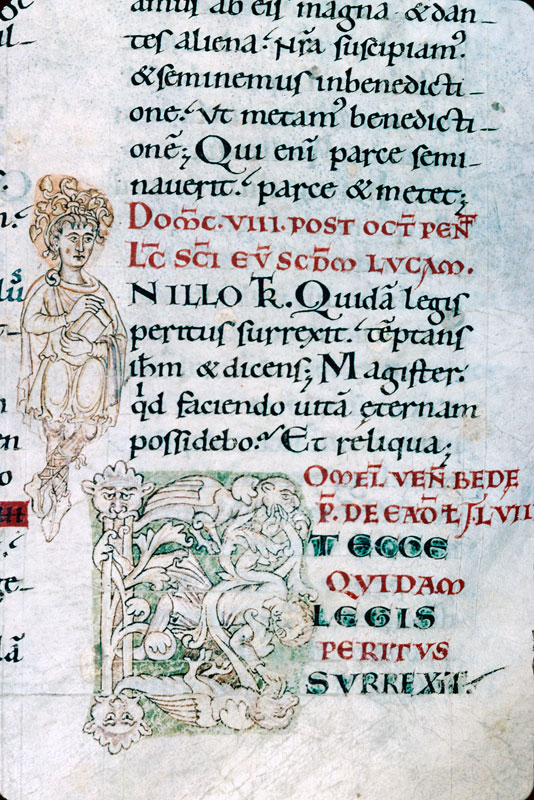 amus ab eis magna & dan_
tes aliena. Nr̄a suscipiam᷒.
& seminemus inbenedicti_
one. Ut metam᷒ benedicti_
onē; Qui eni᷒ parce semi_
nauerit. parce & metet;
DOM̄C. VIII. POST OCT̄ PEN̄T
LC̄ SC̄I EV̄ SCD̄M LVCAM.
N ILLO TR̄. Quidā legis
peritus surrexit. tēptans
ih̄m & dicens; Magister.
qđ faciendo uitā ęternam
possidebo? Et reliqua;
OMEL̄ VEN̄. BEDE
P̄. DE EAD̄ Ł
T ECCE
QVIDAM
LEGIS
PERITUS
SURREXIT.